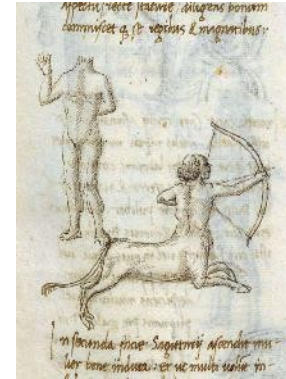 aspectu, recte stature diligens bonum
commiscet q̃ se regibus & magnatibus:
In secunda facie Sagittarij ascendit mu-
lier bene induta: et ut multi volũt in-